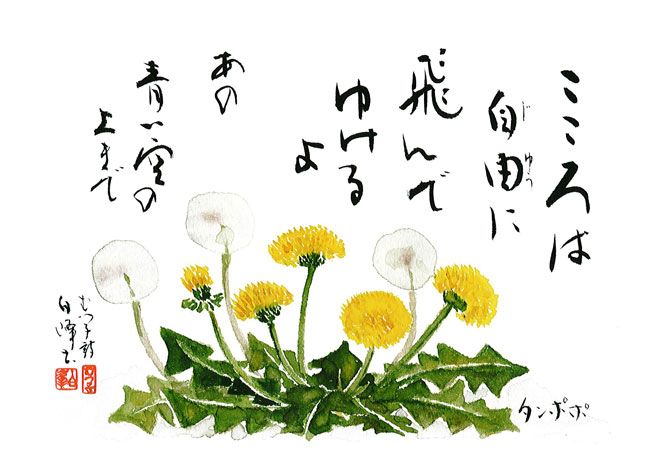 こころは
じゆう
自由に
飛んで
ゆける
よ
あの
青い空の
上まで
むつ子詩
タンポポ